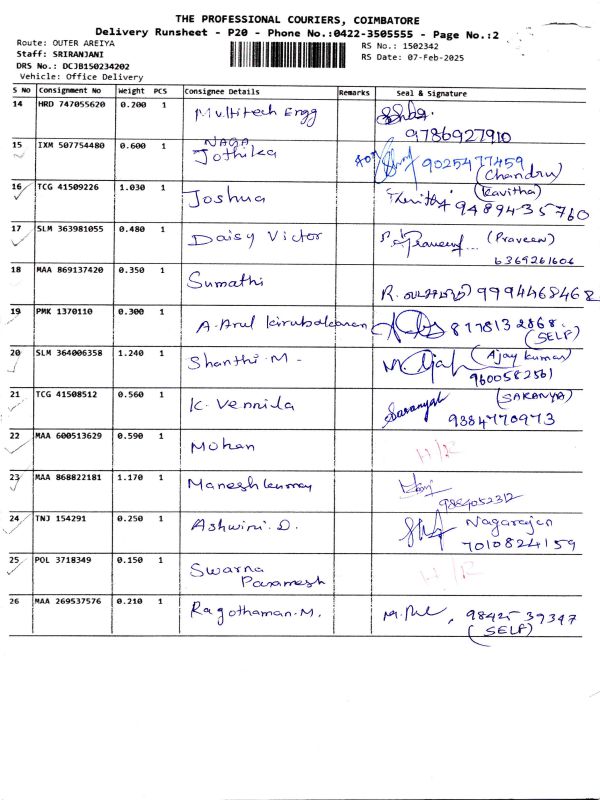 THE PROFESSIONAL COURIERS, COIMBATORE
Delivery Runsheet - P20 - Phone No.:0422-3505555 - Page No.:2
Route: OUTER AREIYA
Staff: SRIRANJANI
DRS No.: DCJB150234202
Vehicle: Office Delivery
RS No.: 1502342
RS Date: 07-Feb-2025
S No Consignment No Weight PCS Consignee Details Remarks Seal & Signature
14 HRD 747055620 0.200 1 Multitech Engg
9786927910
15 IXM 507754480 0.600 1 NAGA
Jothika 9025477459
(Chandru)
16 TCG 41509226 1.030 1 Joshua (Kavitha)
9489435760
17 SLM 363981055 0.480 1 Daisy Victor (Praveen)
6369261606
18 MAA 869137420 0.350 1 Sumathi
R. 9994468468
19 PMK 1370110 0.300 1 A. Arul Kirubakaran 8778132868.
(SELF)
20 SLM 364006358 1.240 1 Shanthi. M - (Ajay kumar)
9600582561
21 TCG 41508512 0.560 1 K. Vennila Saranya (SARANYA)
9384770973
22 MAA 600513629 0.590 1 Mohan H/R
23 MAA 868822181 1.170 1
9864052312
24 TNJ 154291 0.250 1 Ashwini. D. Nagarajan
7010824159
25 POL 3718349 0.150 1 Swarna H/R
Paramesh
26 MAA 269537576 0.210 1 Ragothaman. M. 9842539397
(SELF)